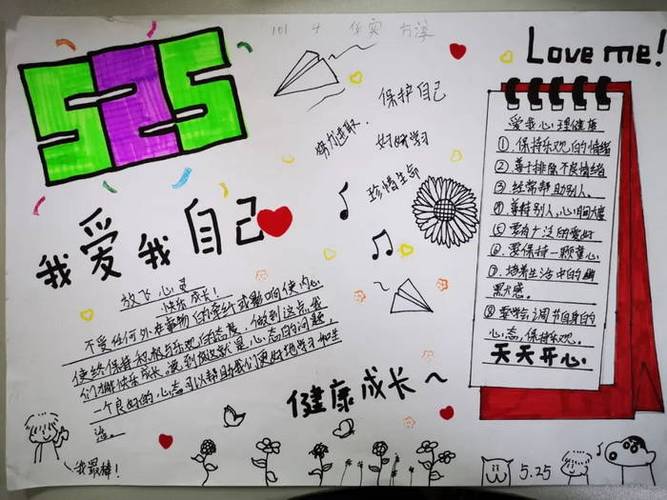 525
Love me!
保护自己
努力进取,
好好学习
珍惜生命
我爱我自己
放飞心灵
快乐成长!
不受任何外在事物的牵绊或影响使内心
始终保持积极与乐观的态度,做到这点我
一个良好的心态可以帮助我们更好地学习和生
活。
我最棒!
健康成长~
爱我心理健康
①.保持乐观的情绪
②.善于排除不良情绪
③.经常帮助别人。
④.善待别人,心胸大度
⑤.要有广泛的爱好
⑥.要保持一颗童心。
⑦.培养生活中的幽
默感。
⑧.要学会调节自身的
心态,保持乐观。
天天开心
5.25